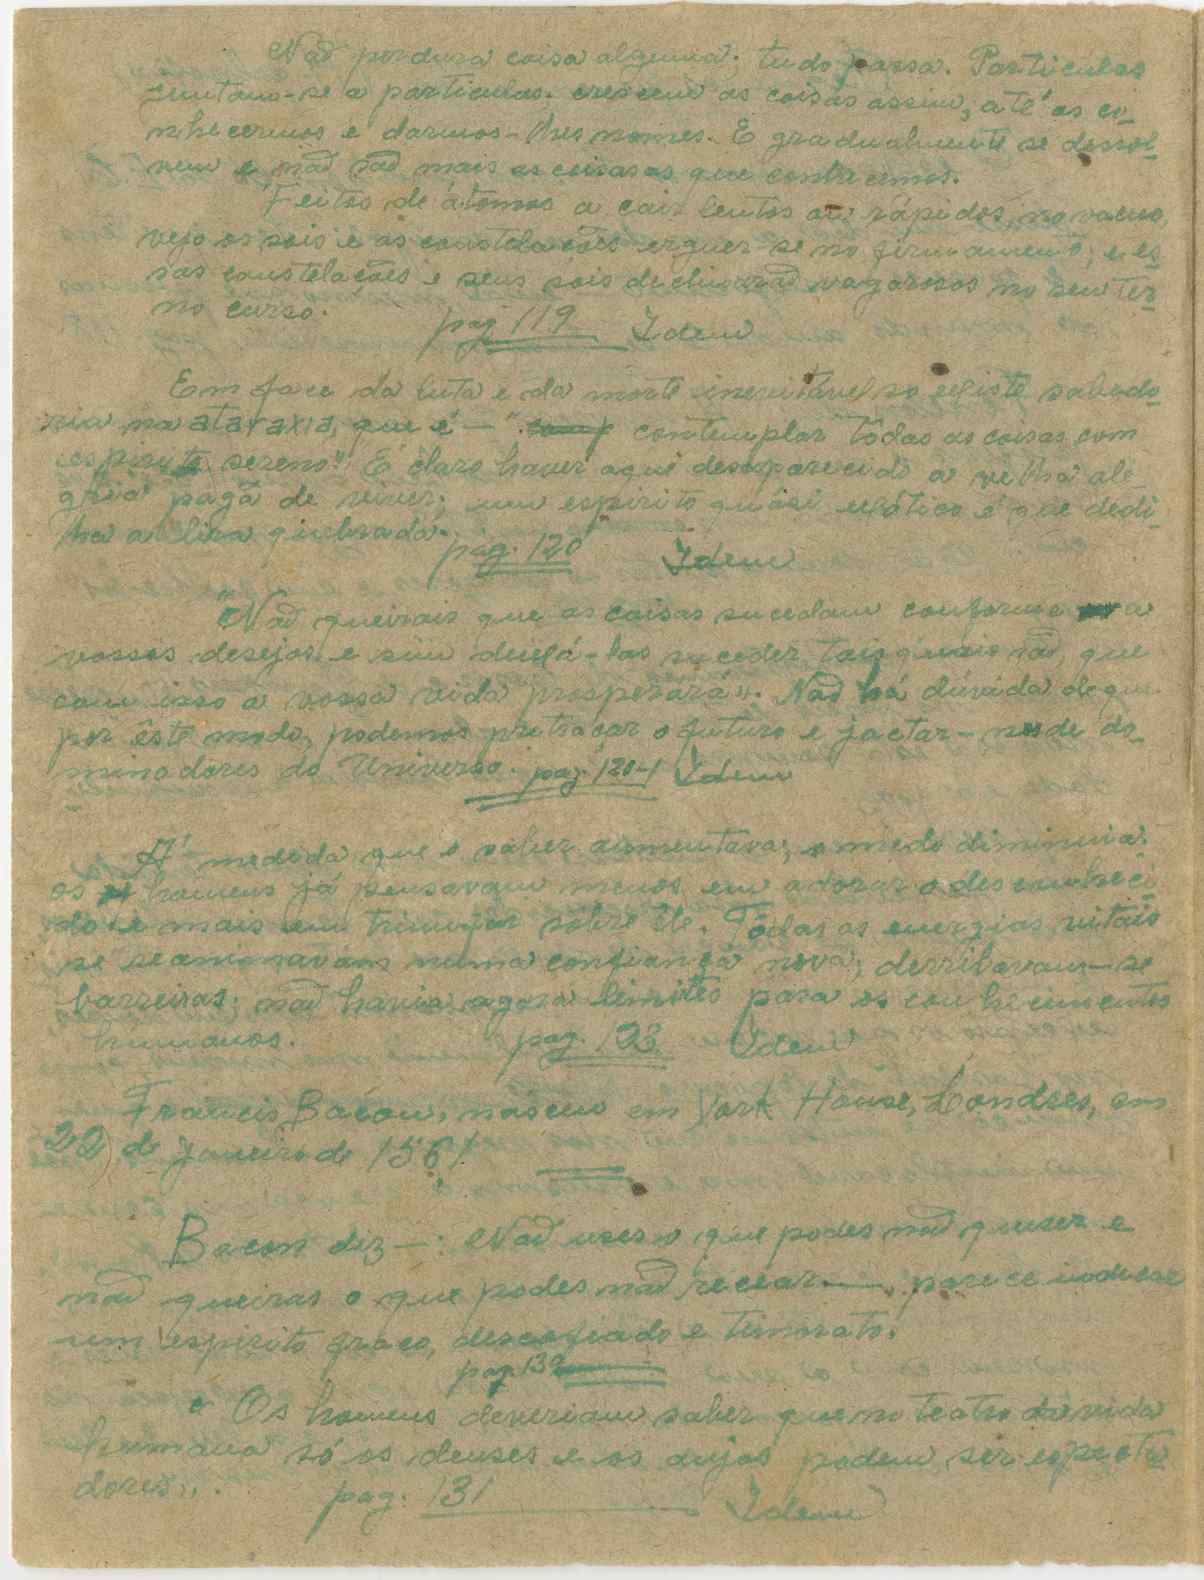 Não perdura coisa alguma; tudo passa. Particulas
juntam-se a particulas. crescem as coisas assim, até as co-
nhecermos e darmos-lhes nomes. E gradualmente se dissol-
vem e não são mais as coisas as que conhecemos.
Feitos de átomos a cair lentos ou rápidos, no vacuo,
vejo os sois e as constelações erguer-se no firmamento; e es-
sas constelações e seus sois declinarão vagarosos no seu ter-
no curso.
pag 119 Idem
Em face da luta e da morte inevitável so existe sabedo-
ria na ataraxia, que é — " contemplar tôdas as coisas com
espirito sereno". É claro haver aqui desaparecido a velha ale-
gria pagã de viver; um espirito quási exótico é que dedi-
lha a lira quebrada.
pág. 120 Idem
"Não queirais que as coisas sucedam conforme a
vossos desejos e sim deixá-las suceder tais quais são, que
com isso a vossa vida prosperará". Não há dúvida de que
por êste modo, podemos pretraçar o futuro e jactar-nos de do-
minadores do Universo. pag. 120-1 Idem
A' medida que o saber aumentava, o medo diminuia:
os homens já pensavam menos em adorar o desconheci-
do e mais em triunfar sôbre êle. Tôdas as energias vitais
se reanimavam numa confiança nova; derribavam-se
barreiras; não havia agora limites para os conhecimentos
humanos. pag. 123 Idem
Francis Bacon, nasceu em York House, Londres, em
22 de Janeiro de 1561
Bacon diz —: Não uses o que podes não querer e
não queiras o que podes não recear —, parece indicar
um espirito fraco, desconfiado e timorato.
pag. 130
Os homens deveriam saber que no teatro da vida
humana só os deuses e os anjos podem ser especta-
dores".
pag. 131 Idem